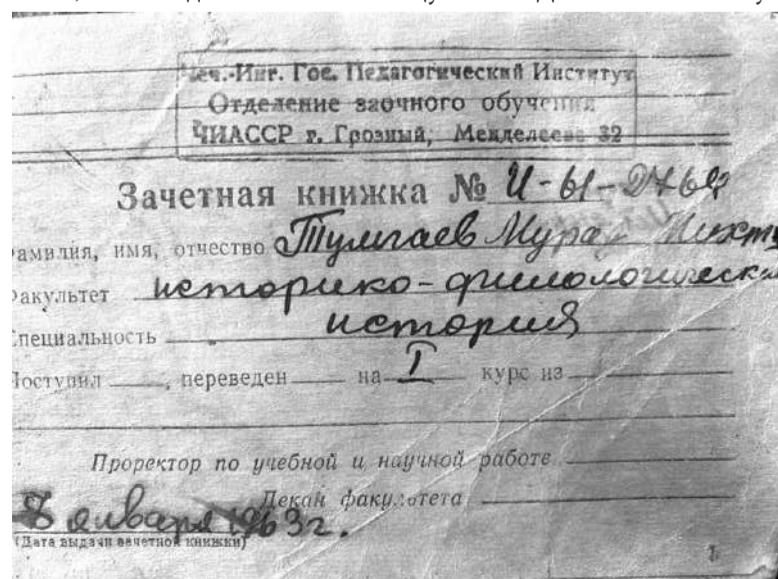 Чеч.-Инг. Гос. Педагогический Институт
Отделение заочного обучения
ЧИАССР г. Грозный, Менделеева 32
Зачетная книжка №
Фамилия, имя, отчество
Факультет историко-филологически
Специальность история
Поступил , переведен на I курс из
Проректор по учебной и научной работе
Декан факультета
8 января 1963 г.
(Дата выдачи зачетной книжки)
1